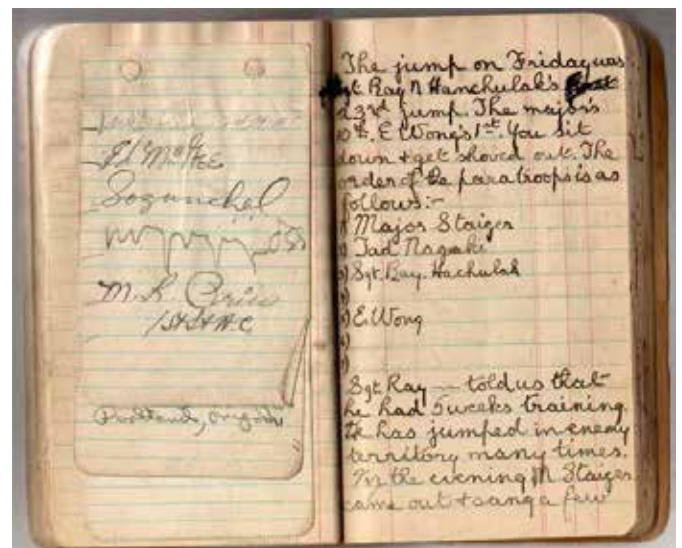 Ed McGee
M. R. Price
Portland, Oregon
The jump on Friday was
Sgt Ray N Hanchulak's
23rd jump. The major's
10th. E Wong's 1st. You sit
down + get shoved out. The
order of the paratroops is as
follows:-
1) Major Staiger
2) Tad Nagaki
3) Sgt. Ray. Hachulak
4)
5) E. Wong
6)
7)
Sgt Ray — told us that
he had 5 weeks training
He has jumped in enemy
territory many times.
In the evening M Staiger
came out + sang a few